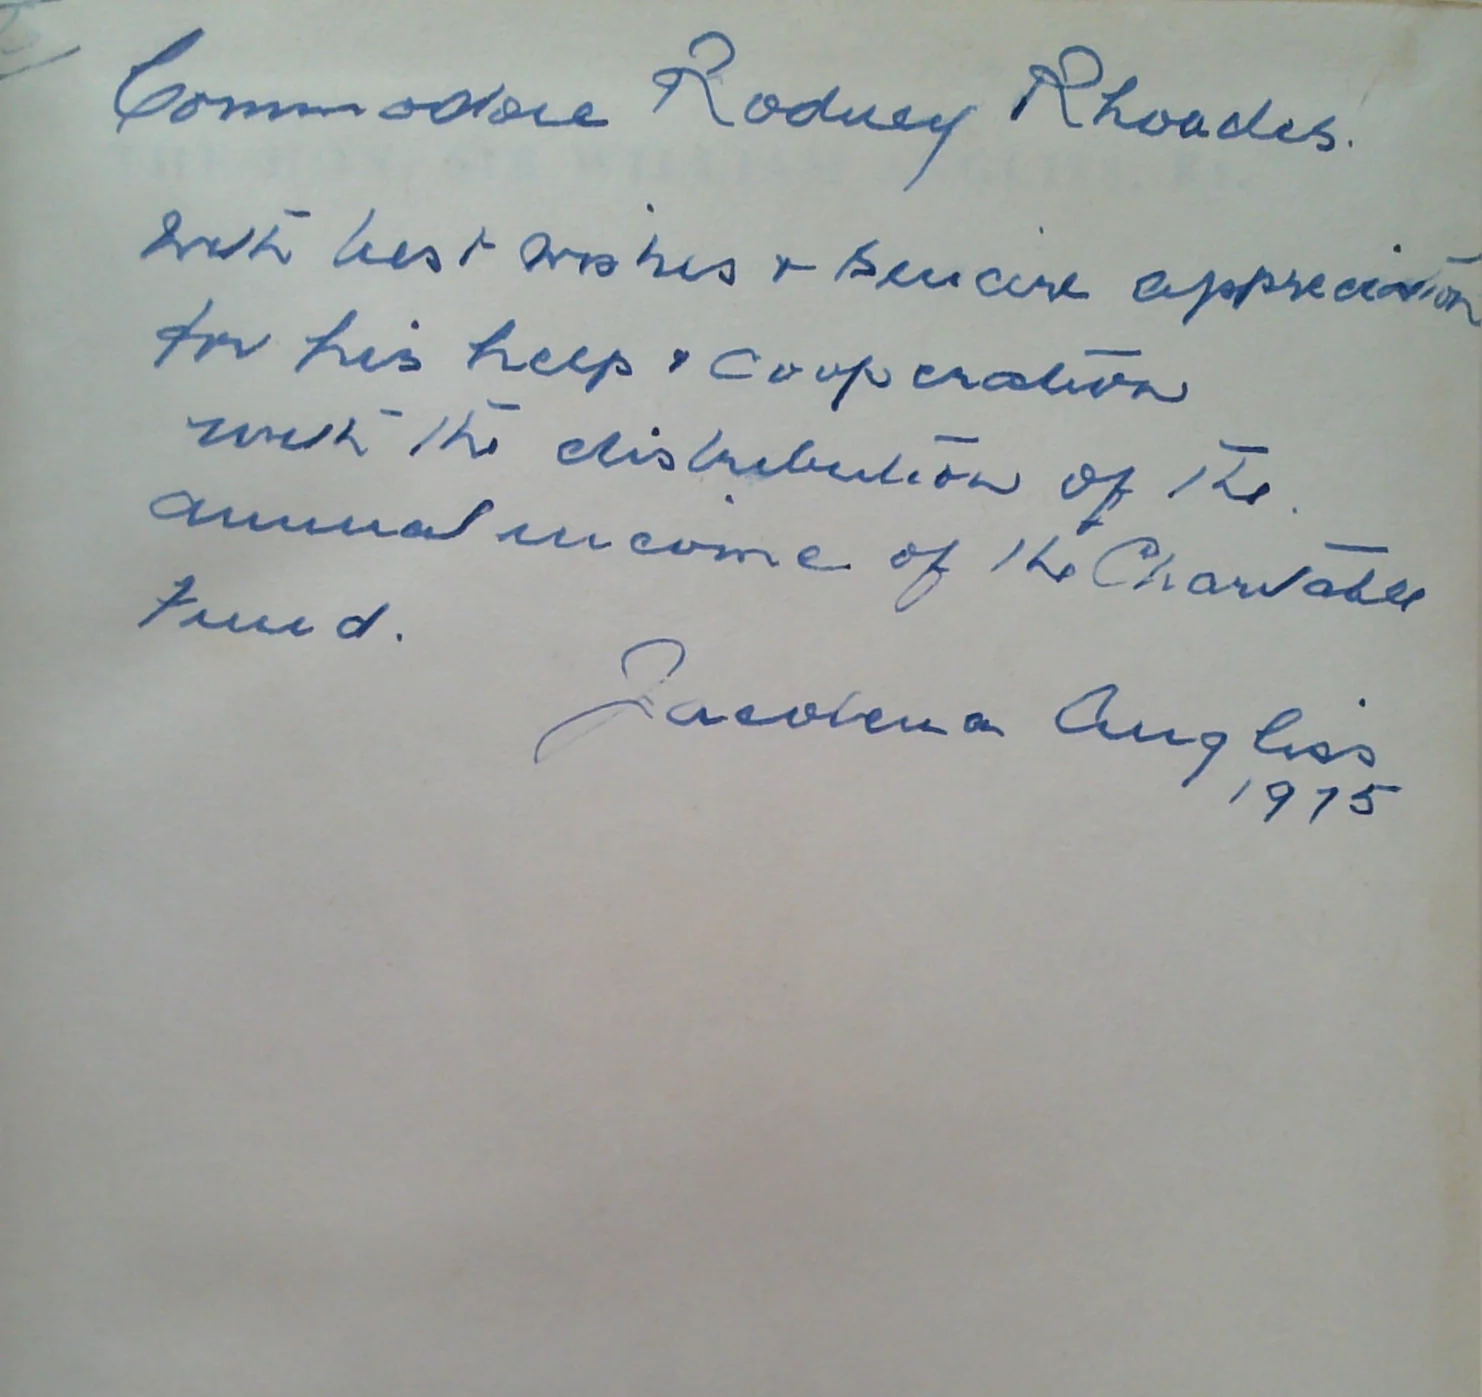 Commodore Rodney Rhoades.
with best wishes & sincere appreciation
for his help & cooperation
with the distribution of the
annual income of the Charitable
Fund.
Jacobena Angliss
1975